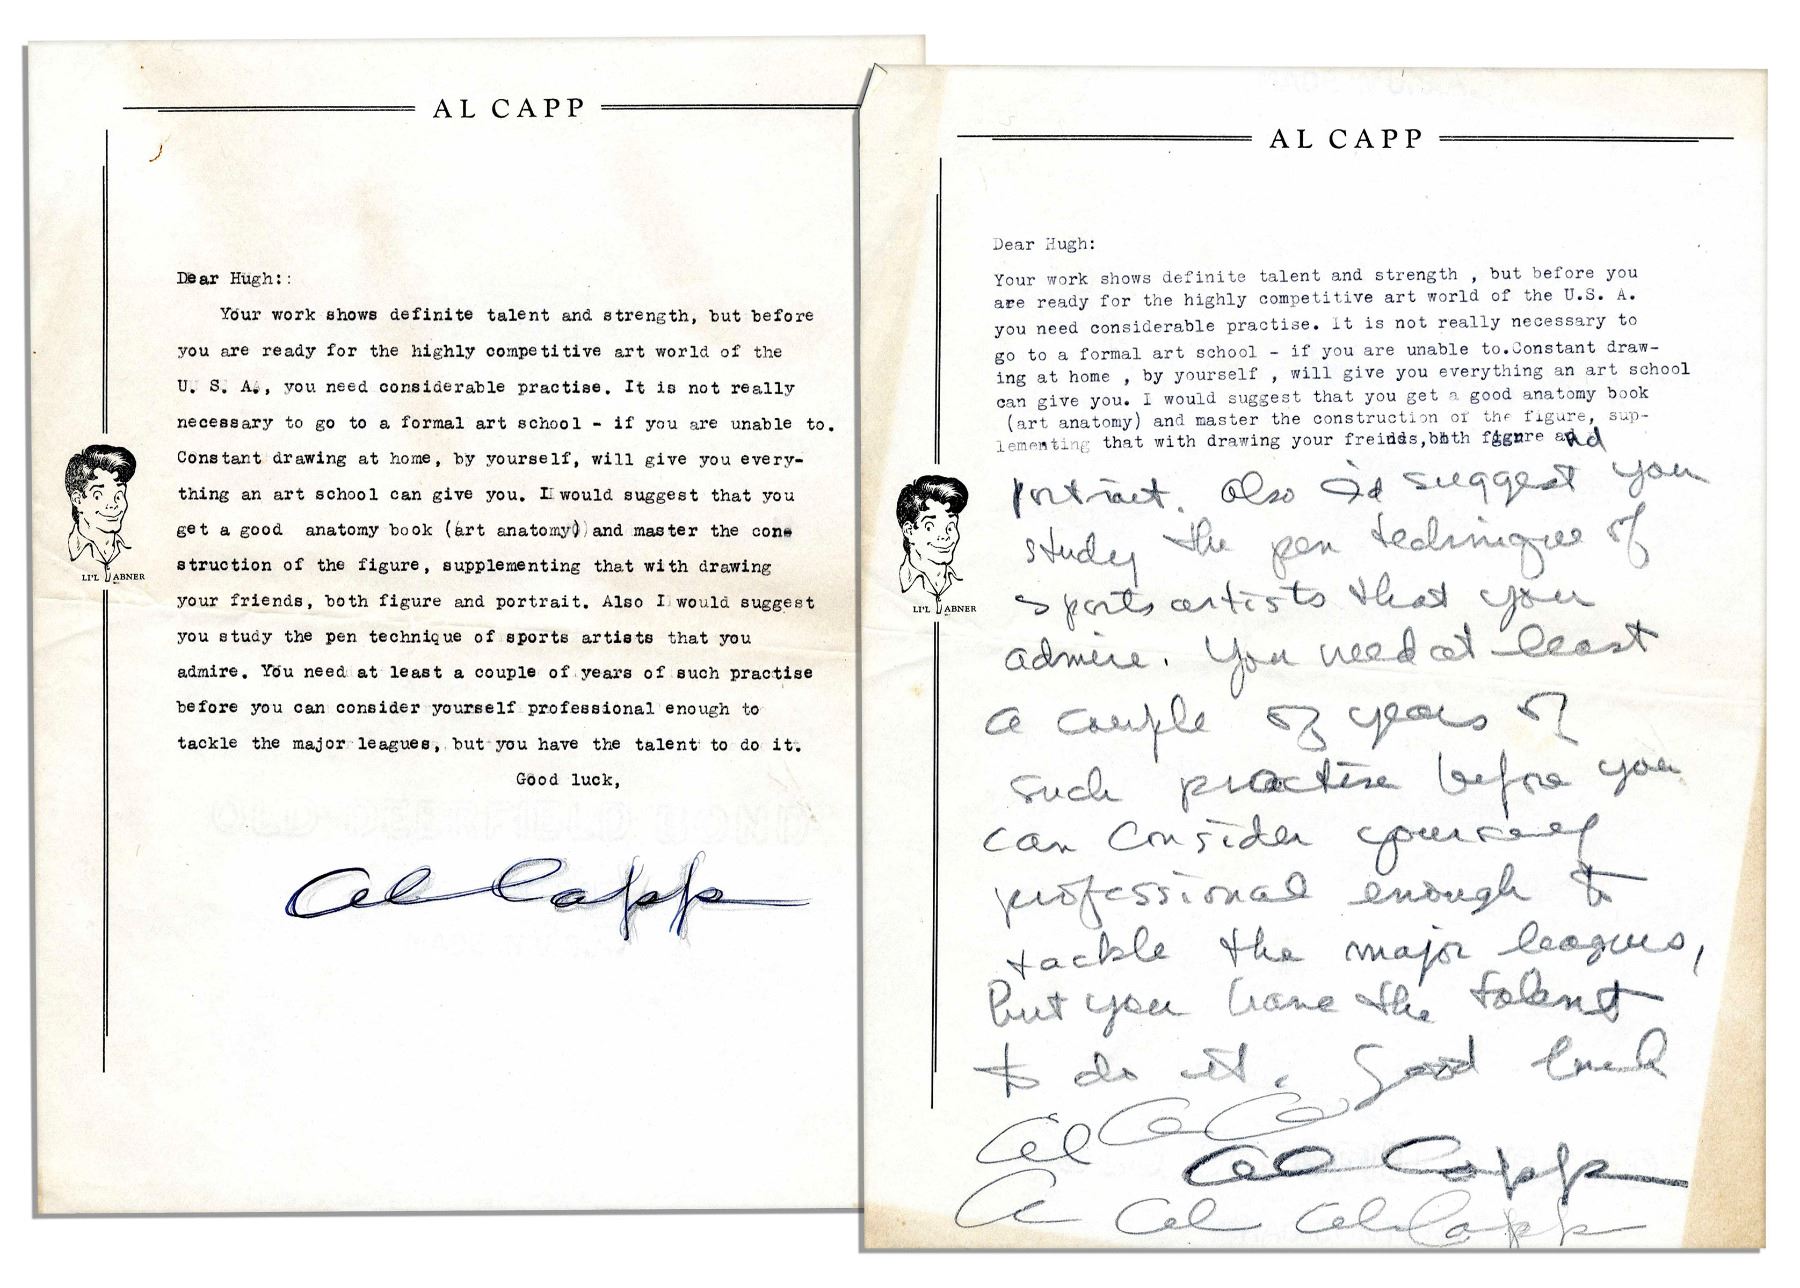 AL CAPP
Dear Hugh::
Your work shows definite talent and strength, but before
you are ready for the highly competitive art world of the
U. S. A., you need considerable practise. It is not really
necessary to go to a formal art school - if you are unable to.
Constant drawing at home, by yourself, will give you every-
thing an art school can give you. I would suggest that you
get a good anatomy book (art anatomy) and master the con-
struction of the figure, supplementing that with drawing
your friends, both figure and portrait. Also I would suggest
you study the pen technique of sports artists that you
admire. You need at least a couple of years of such practise
before you can consider yourself professional enough to
tackle the major leagues, but you have the talent to do it.
Good luck,
LI'L ABNER
OLD DEERFIELD BOND
Al Capp
AL CAPP
Dear Hugh:
Your work shows definite talent and strength , but before you
are ready for the highly competitive art world of the U.S. A.
you need considerable practise. It is not really necessary to
go to a formal art school - if you are unable to.Constant draw-
ing at home , by yourself , will give you everything an art school
can give you. I would suggest that you get a good anatomy book
(art anatomy) and master the construction of the figure, sup-
lementing that with drawing your freinds,both figure and
portrait. Also I'd suggest you
study the pen technique of
sports artists that you
admire. You need at least
LI'L ABNER
a couple of years of
such practise before you
can consider yourself
professional enough to
tackle the major leagues,
but you have the talent
to do it. Good luck
Al C C
Al Capp
A Al Al Capp